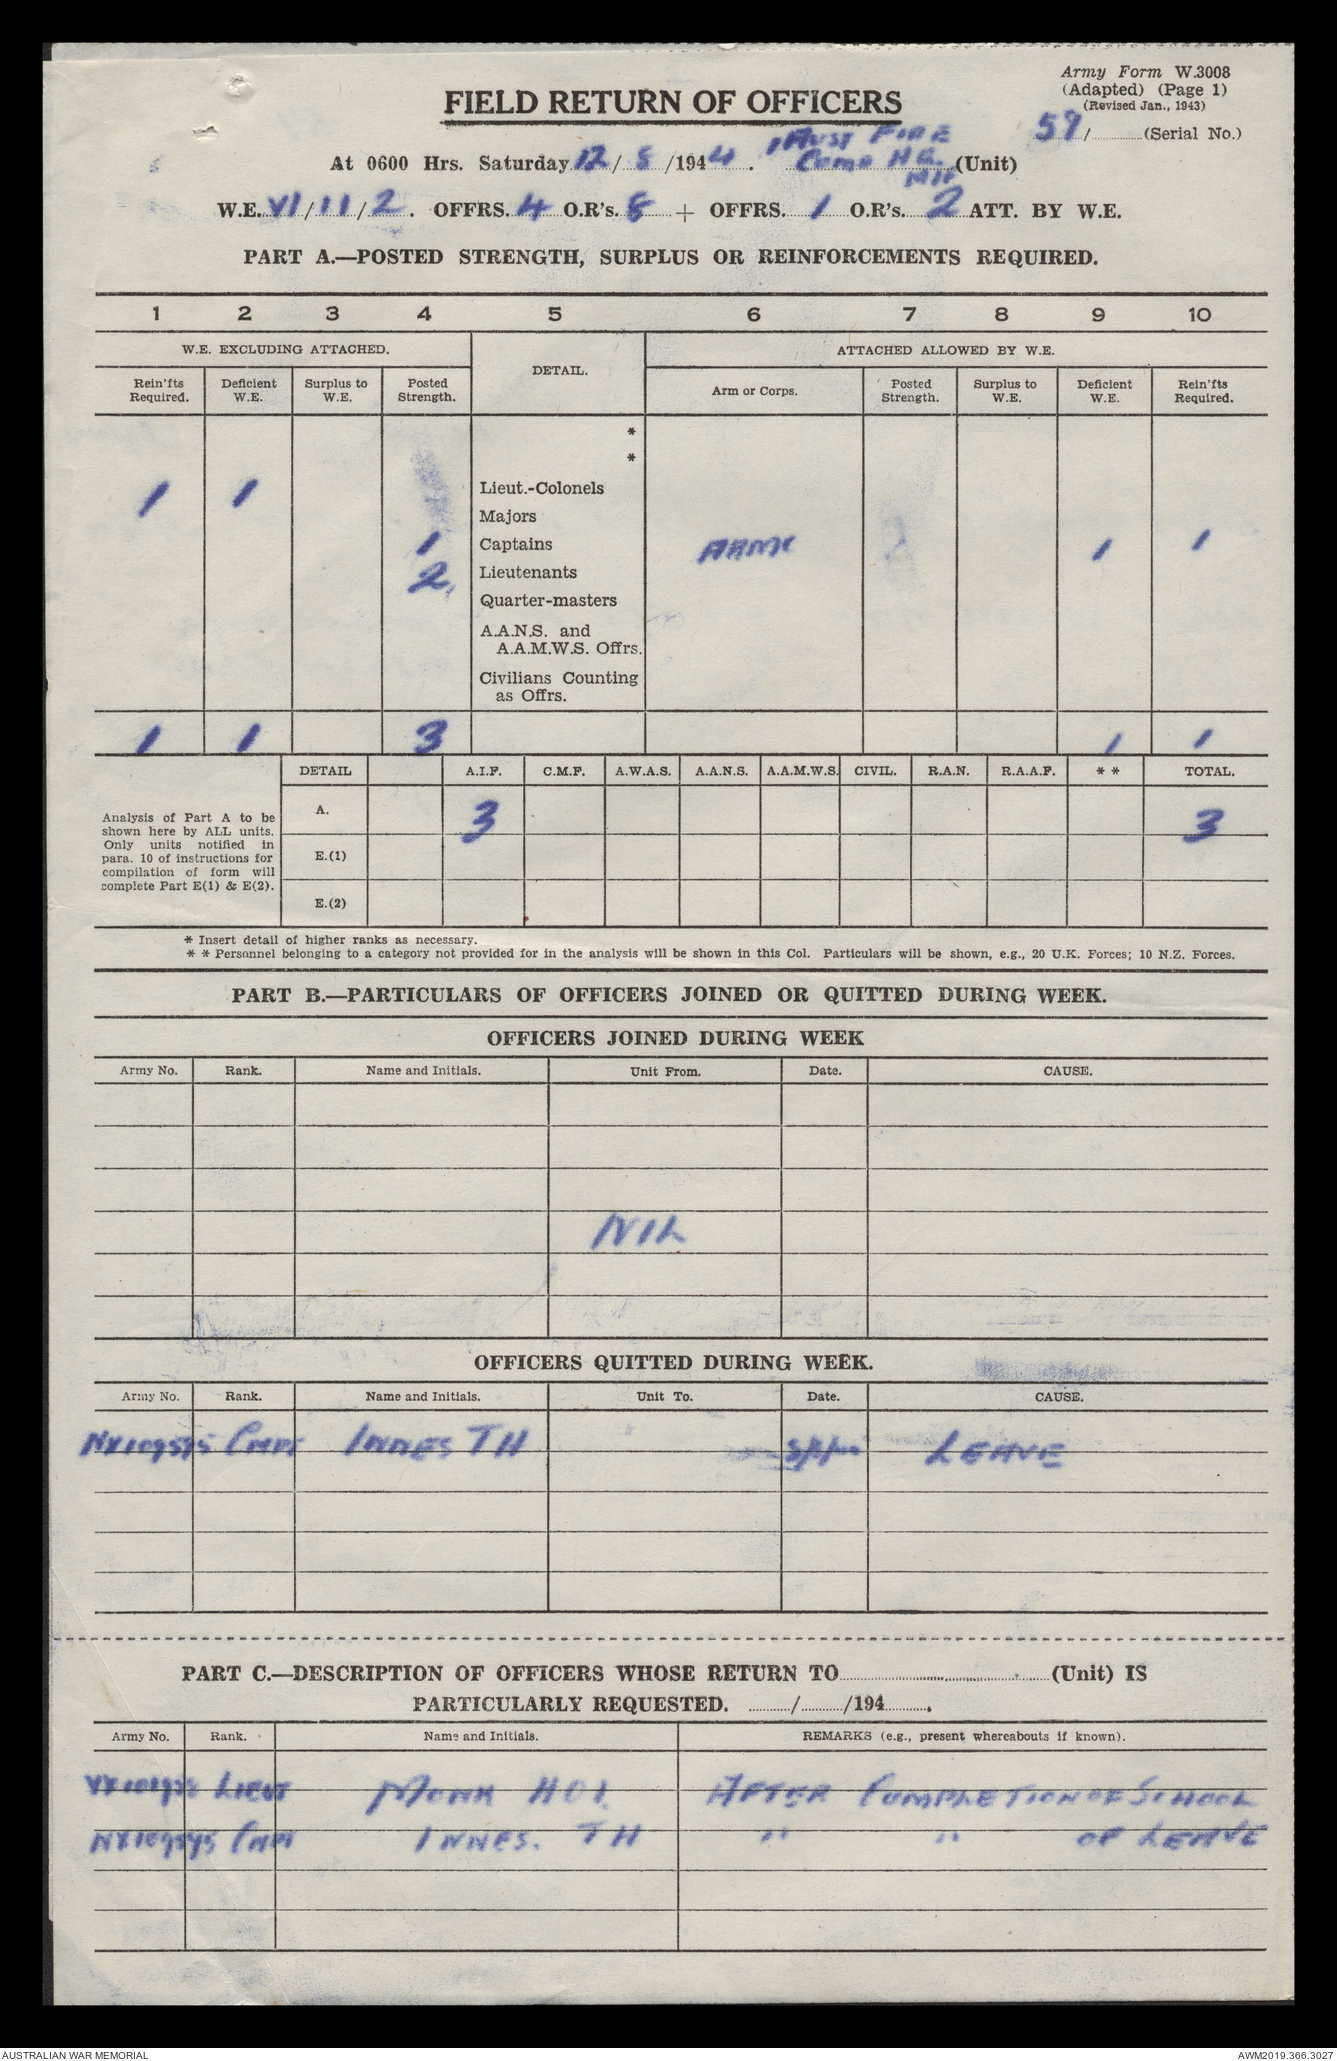 Army Form W.3008
(Adapted) (Page 1)
(Revised Jan., 1943)
FIELD RETURN OF OFFICERS
59/............(Serial No.)
At 0600 Hrs. Saturday 12/8/1944. 1 Aust Fire Comd HQ. (Unit)
W.E. VI/11/2. OFFRS. 4 O.R's. 8 + OFFRS. 1 O.R's. 2 ATT. BY W.E.
PART A.—POSTED STRENGTH, SURPLUS OR REINFORCEMENTS REQUIRED.
1 2 3 4 5 6 7 8 9 10
W.E. EXCLUDING ATTACHED. DETAIL. ATTACHED ALLOWED BY W.E.
Rein'fts Required. Deficient W.E. Surplus to W.E. Posted Strength. Arm or Corps. Posted Strength. Surplus to W.E. Deficient W.E. Rein'fts Required.
*
*
1 1 Lieut.-Colonels
Majors
1 Captains AAMC 1 1
2 Lieutenants
Quarter-masters
A.A.N.S. and
A.A.M.W.S. Offrs.
Civilians Counting
as Offrs.
1 1 3 1 1
DETAIL A.I.F. C.M.F. A.W.A.S. A.A.N.S. A.A.M.W.S. CIVIL. R.A.N. R.A.A.F. * * TOTAL.
Analysis of Part A to be
shown here by ALL units.
Only units notified in
para. 10 of instructions for
compilation of form will
complete Part E(1) & E(2).
A. 3 3
E.(1)
E.(2)
* Insert detail of higher ranks as necessary.
* * Personnel belonging to a category not provided for in the analysis will be shown in this Col. Particulars will be shown, e.g., 20 U.K. Forces; 10 N.Z. Forces.
PART B.—PARTICULARS OF OFFICERS JOINED OR QUITTED DURING WEEK.
OFFICERS JOINED DURING WEEK
Army No. Rank. Name and Initials. Unit From. Date. CAUSE.
NIL
OFFICERS QUITTED DURING WEEK.
Army No. Rank. Name and Initials. Unit To. Date. CAUSE.
Capt INNES TH LEAVE
PART C.—DESCRIPTION OF OFFICERS WHOSE RETURN TO............(Unit) IS
PARTICULARLY REQUESTED. ......./......./194.......
Army No. Rank. Name and Initials. REMARKS (e.g., present whereabouts if known).
LIEUT MONK AFTER COMPLETION OF SCHOOL
CAPT INNES. TH " " OF LEAVE
AUSTRALIAN WAR MEMORIAL
AWM2019.366.3027